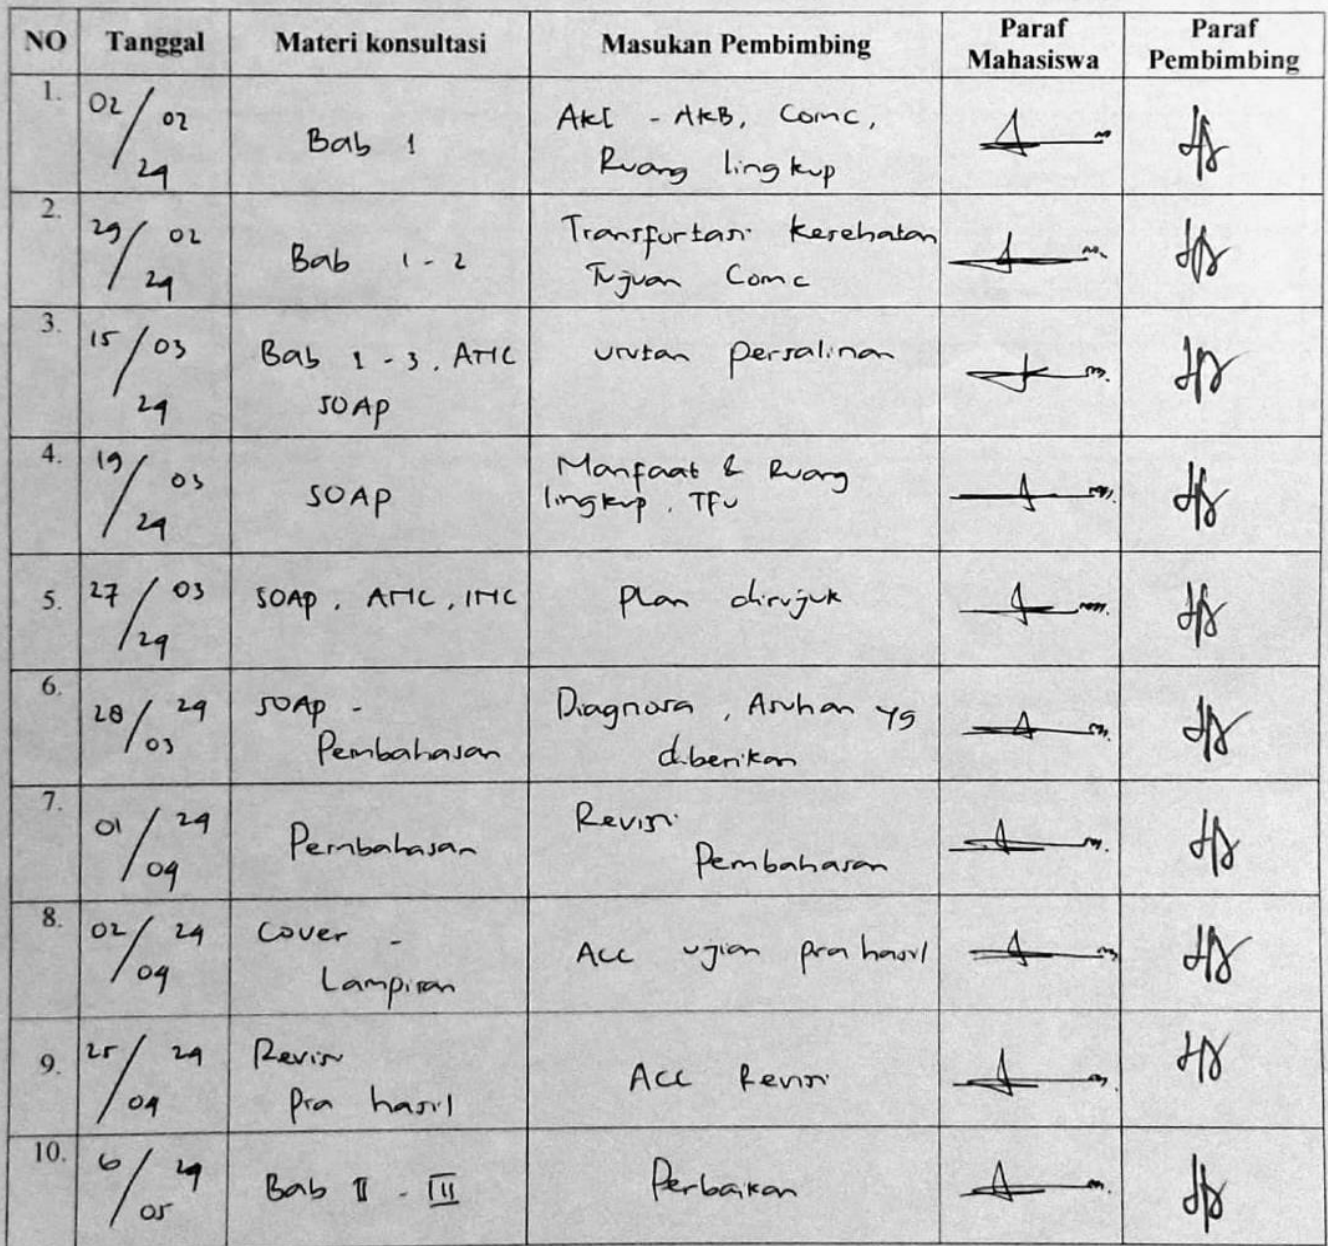 NO Tanggal Materi konsultasi Masukan Pembimbing Paraf Mahasiswa Paraf Pembimbing
1. 02/02/24 Bab 1 AKI - AKB, Comc,
Ruang lingkup
2. 29/02/24 Bab 1 - 2 Transfurtasi kesehatan
Tujuan Comc
3. 15/03/24 Bab 1 - 3, ANC urutan persalinan
SOAP
4. 19/03/24 SOAP Manfaat & Ruang
lingkup, TFU
5. 27/03/24 SOAP, ANC, INC plan dirujuk
6. 28/03 24 SOAP - Diagnosa, Asuhan yg
Pembahasan diberikan
7. 01/04 24 Pembahasan Revisi
Pembahasan
8. 02/04 24 Cover - Acc ujian pra hasil
Lampiran
9. 25/04 24 Revisi Acc Revisi
pra hasil
10. 6/05 24 Bab II - III Perbaikan